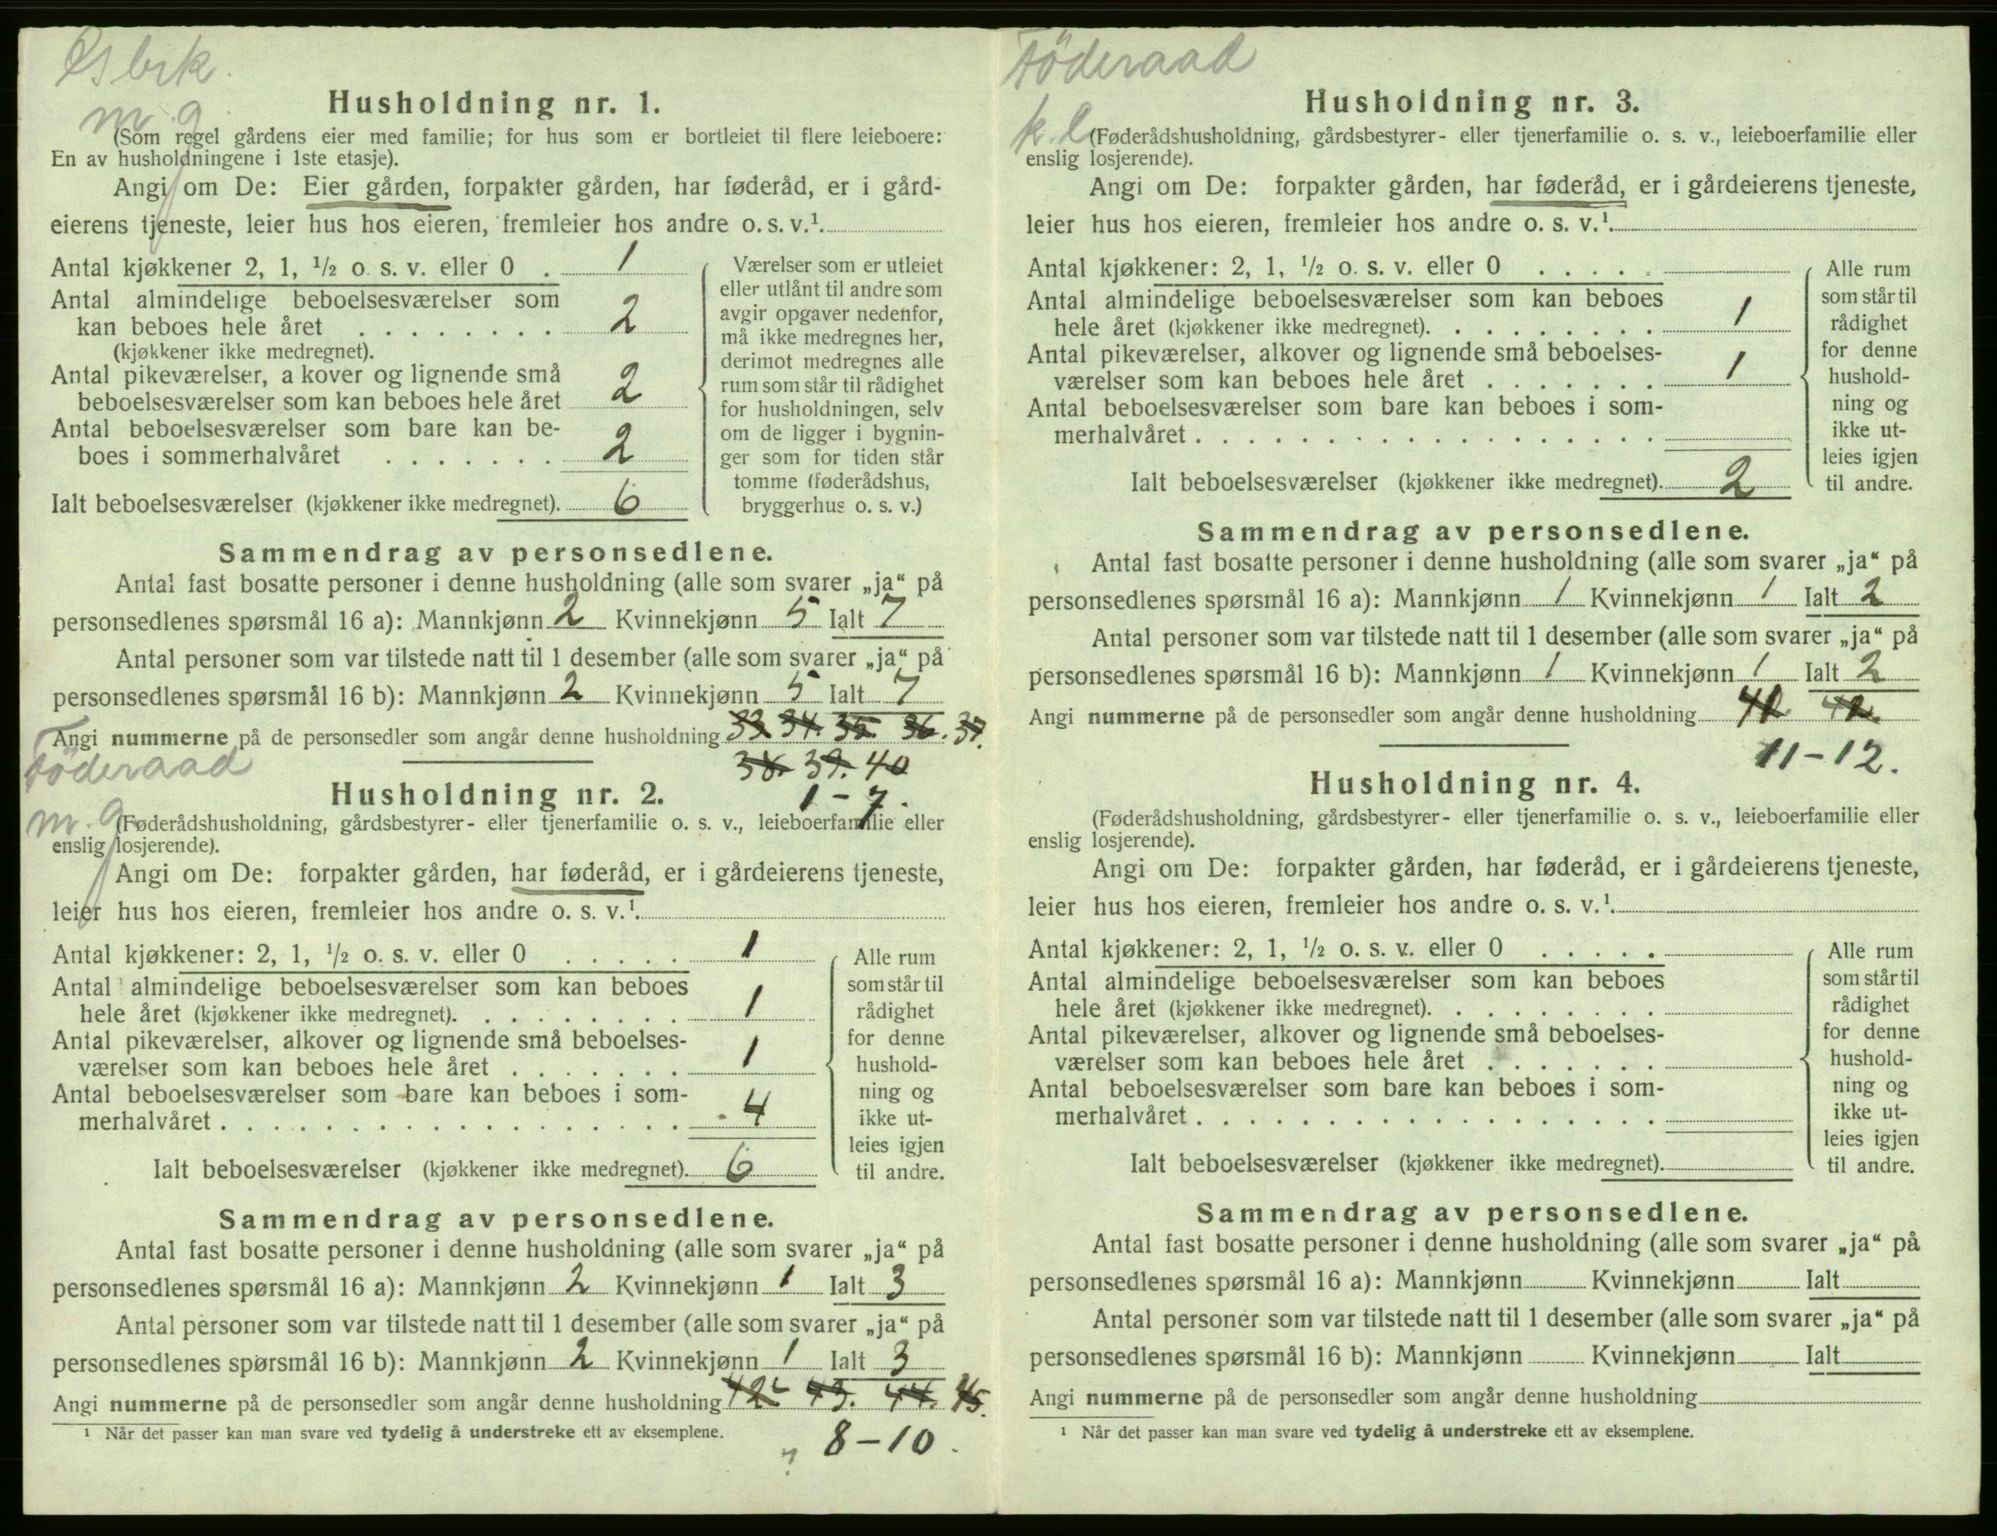 Gsbrk.
m. g.
Husholdning nr. 1.
(Som regel gårdens eier med familie; for hus som er bortleiet til flere leieboere:
En av husholdningene i 1ste etasje).
Angi om De: Eier gården, forpakter gården, har føderåd, er i gård-
eierens tjeneste, leier hus hos eieren, fremleier hos andre o. s. v.¹.
Antal kjøkkener 2, 1, ½ o. s. v. eller 0 . 1
Antal almindelige beboelsesværelser som
kan beboes hele året . . . . . . . . 2
(kjøkkener ikke medregnet).
Antal pikeværelser, a kover og lignende små
beboelsesværelser som kan beboes hele året 2
Antal beboelsesværelser som bare kan be-
boes i sommerhalvåret . . . . . . . 2
Ialt beboelsesværelser (kjøkkener ikke medregnet). 6
Værelser som er utleiet
eller utlånt til andre som
avgir opgaver nedenfor,
må ikke medregnes her,
derimot medregnes alle
rum som står til rådighet
for husholdningen, selv
om de ligger i bygnin-
ger som for tiden står
tomme (føderådshus,
bryggerhus o. s. v.)
Sammendrag av personsedlene.
Antal fast bosatte personer i denne husholdning (alle som svarer „ja“ på
personsedlenes spørsmål 16 a): Mannkjønn 2 Kvinnekjønn 5 Ialt 7
Antal personer som var tilstede natt til 1 desember (alle som svarer „ja“ på
personsedlenes spørsmål 16 b): Mannkjønn 2 Kvinnekjønn 5 Ialt 7
Angi nummerne på de personsedler som angår denne husholdning 33 34. 35. 36. 37.
38. 39. 40
1 - 7.
Föderaad
m. g.
Husholdning nr. 2.
(Føderådshusholdning, gårdsbestyrer- eller tjenerfamilie o. s. v., leieboerfamilie eller
enslig losjerende).
Angi om De: forpakter gården, har føderåd, er i gårdeierens tjeneste,
leier hus hos eieren, fremleier hos andre o. s. v.¹.
Antal kjøkkener: 2, 1, ½ o. s. v. eller 0 . . . . . 1
Antal almindelige beboelsesværelser som kan beboes
hele året (kjøkkener ikke medregnet). . . . . . . . . 1
Antal pikeværelser, alkover og lignende små beboelses-
værelser som kan beboes hele året . . . . . . . 1
Antal beboelsesværelser som bare kan beboes i som-
merhalvåret . . . . . . . . . . . . . . . . . . 4
Ialt beboelsesværelser (kjøkkener ikke medregnet). 6
Alle rum
som står til
rådighet
for denne
hushold-
ning og
ikke ut-
leies igjen
til andre.
Sammendrag av personsedlene.
Antal fast bosatte personer i denne husholdning (alle som svarer „ja“ på
personsedlenes spørsmål 16 a): Mannkjønn 2 Kvinnekjønn 1 Ialt 3
Antal personer som var tilstede natt til 1 desember (alle som svarer „ja“ på
personsedlenes spørsmål 16 b): Mannkjønn 2 Kvinnekjønn 1 Ialt 3
Angi nummerne på de personsedler som angår denne husholdning 42 43. 44. 45.
¹ Når det passer kan man svare ved tydelig å understreke ett av eksemplene.
? 8 - 10.
Föderaad
k. l.
Husholdning nr. 3.
(Føderådshusholdning, gårdsbestyrer- eller tjenerfamilie o. s. v., leieboerfamilie eller
enslig losjerende).
Angi om De: forpakter gården, har føderåd, er i gårdeierens tjeneste,
leier hus hos eieren, fremleier hos andre o. s. v.¹.
Antal kjøkkener: 2, 1, ½ o. s. v. eller 0 . . . . .
Antal almindelige beboelsesværelser som kan beboes
hele året (kjøkkener ikke medregnet). . . . . . . . . 1
Antal pikeværelser, alkover og lignende små beboelses-
værelser som kan beboes hele året . . . . . . . 1
Antal beboelsesværelser som bare kan beboes i som-
merhalvåret . . . . . . . . . . . . . . . . . .
Ialt beboelsesværelser (kjøkkener ikke medregnet). 2
Alle rum
som står til
rådighet
for denne
hushold-
ning og
ikke ut-
leies igjen
til andre.
Sammendrag av personsedlene.
Antal fast bosatte personer i denne husholdning (alle som svarer „ja“ på
personsedlenes spørsmål 16 a): Mannkjønn 1 Kvinnekjønn 1 Ialt 2
Antal personer som var tilstede natt til 1 desember (alle som svarer „ja“ på
personsedlenes spørsmål 16 b): Mannkjønn 1 Kvinnekjønn 1 Ialt 2
Angi nummerne på de personsedler som angår denne husholdning 42.
11 - 12.
Husholdning nr. 4.
(Føderådshusholdning, gårdsbestyrer- eller tjenerfamilie o. s. v., leieboerfamilie eller
enslig losjerende).
Angi om De: forpakter gården, har føderåd, er i gårdeierens tjeneste,
leier hus hos eieren, fremleier hos andre o. s. v.¹.
Antal kjøkkener: 2, 1, ½ o. s. v. eller 0 . . . . .
Antal almindelige beboelsesværelser som kan beboes
hele året (kjøkkener ikke medregnet). . . . . . . . .
Antal pikeværelser, alkover og lignende små beboelses-
værelser som kan beboes hele året . . . . . . .
Antal beboelsesværelser som bare kan beboes i som-
merhalvåret . . . . . . . . . . . . . . . . . .
Ialt beboelsesværelser (kjøkkener ikke medregnet).
Alle rum
som står til
rådighet
for denne
hushold-
ning og
ikke ut-
leies igjen
til andre.
Sammendrag av personsedlene.
Antal fast bosatte personer i denne husholdning (alle som svarer „ja“ på
personsedlenes spørsmål 16 a): Mannkjønn Kvinnekjønn Ialt
Antal personer som var tilstede natt til 1 desember (alle som svarer „ja“ på
personsedlenes spørsmål 16 b): Mannkjønn Kvinnekjønn Ialt
Angi nummerne på de personsedler som angår denne husholdning
¹ Når det passer kan man svare ved tydelig å understreke ett av eksemplene.